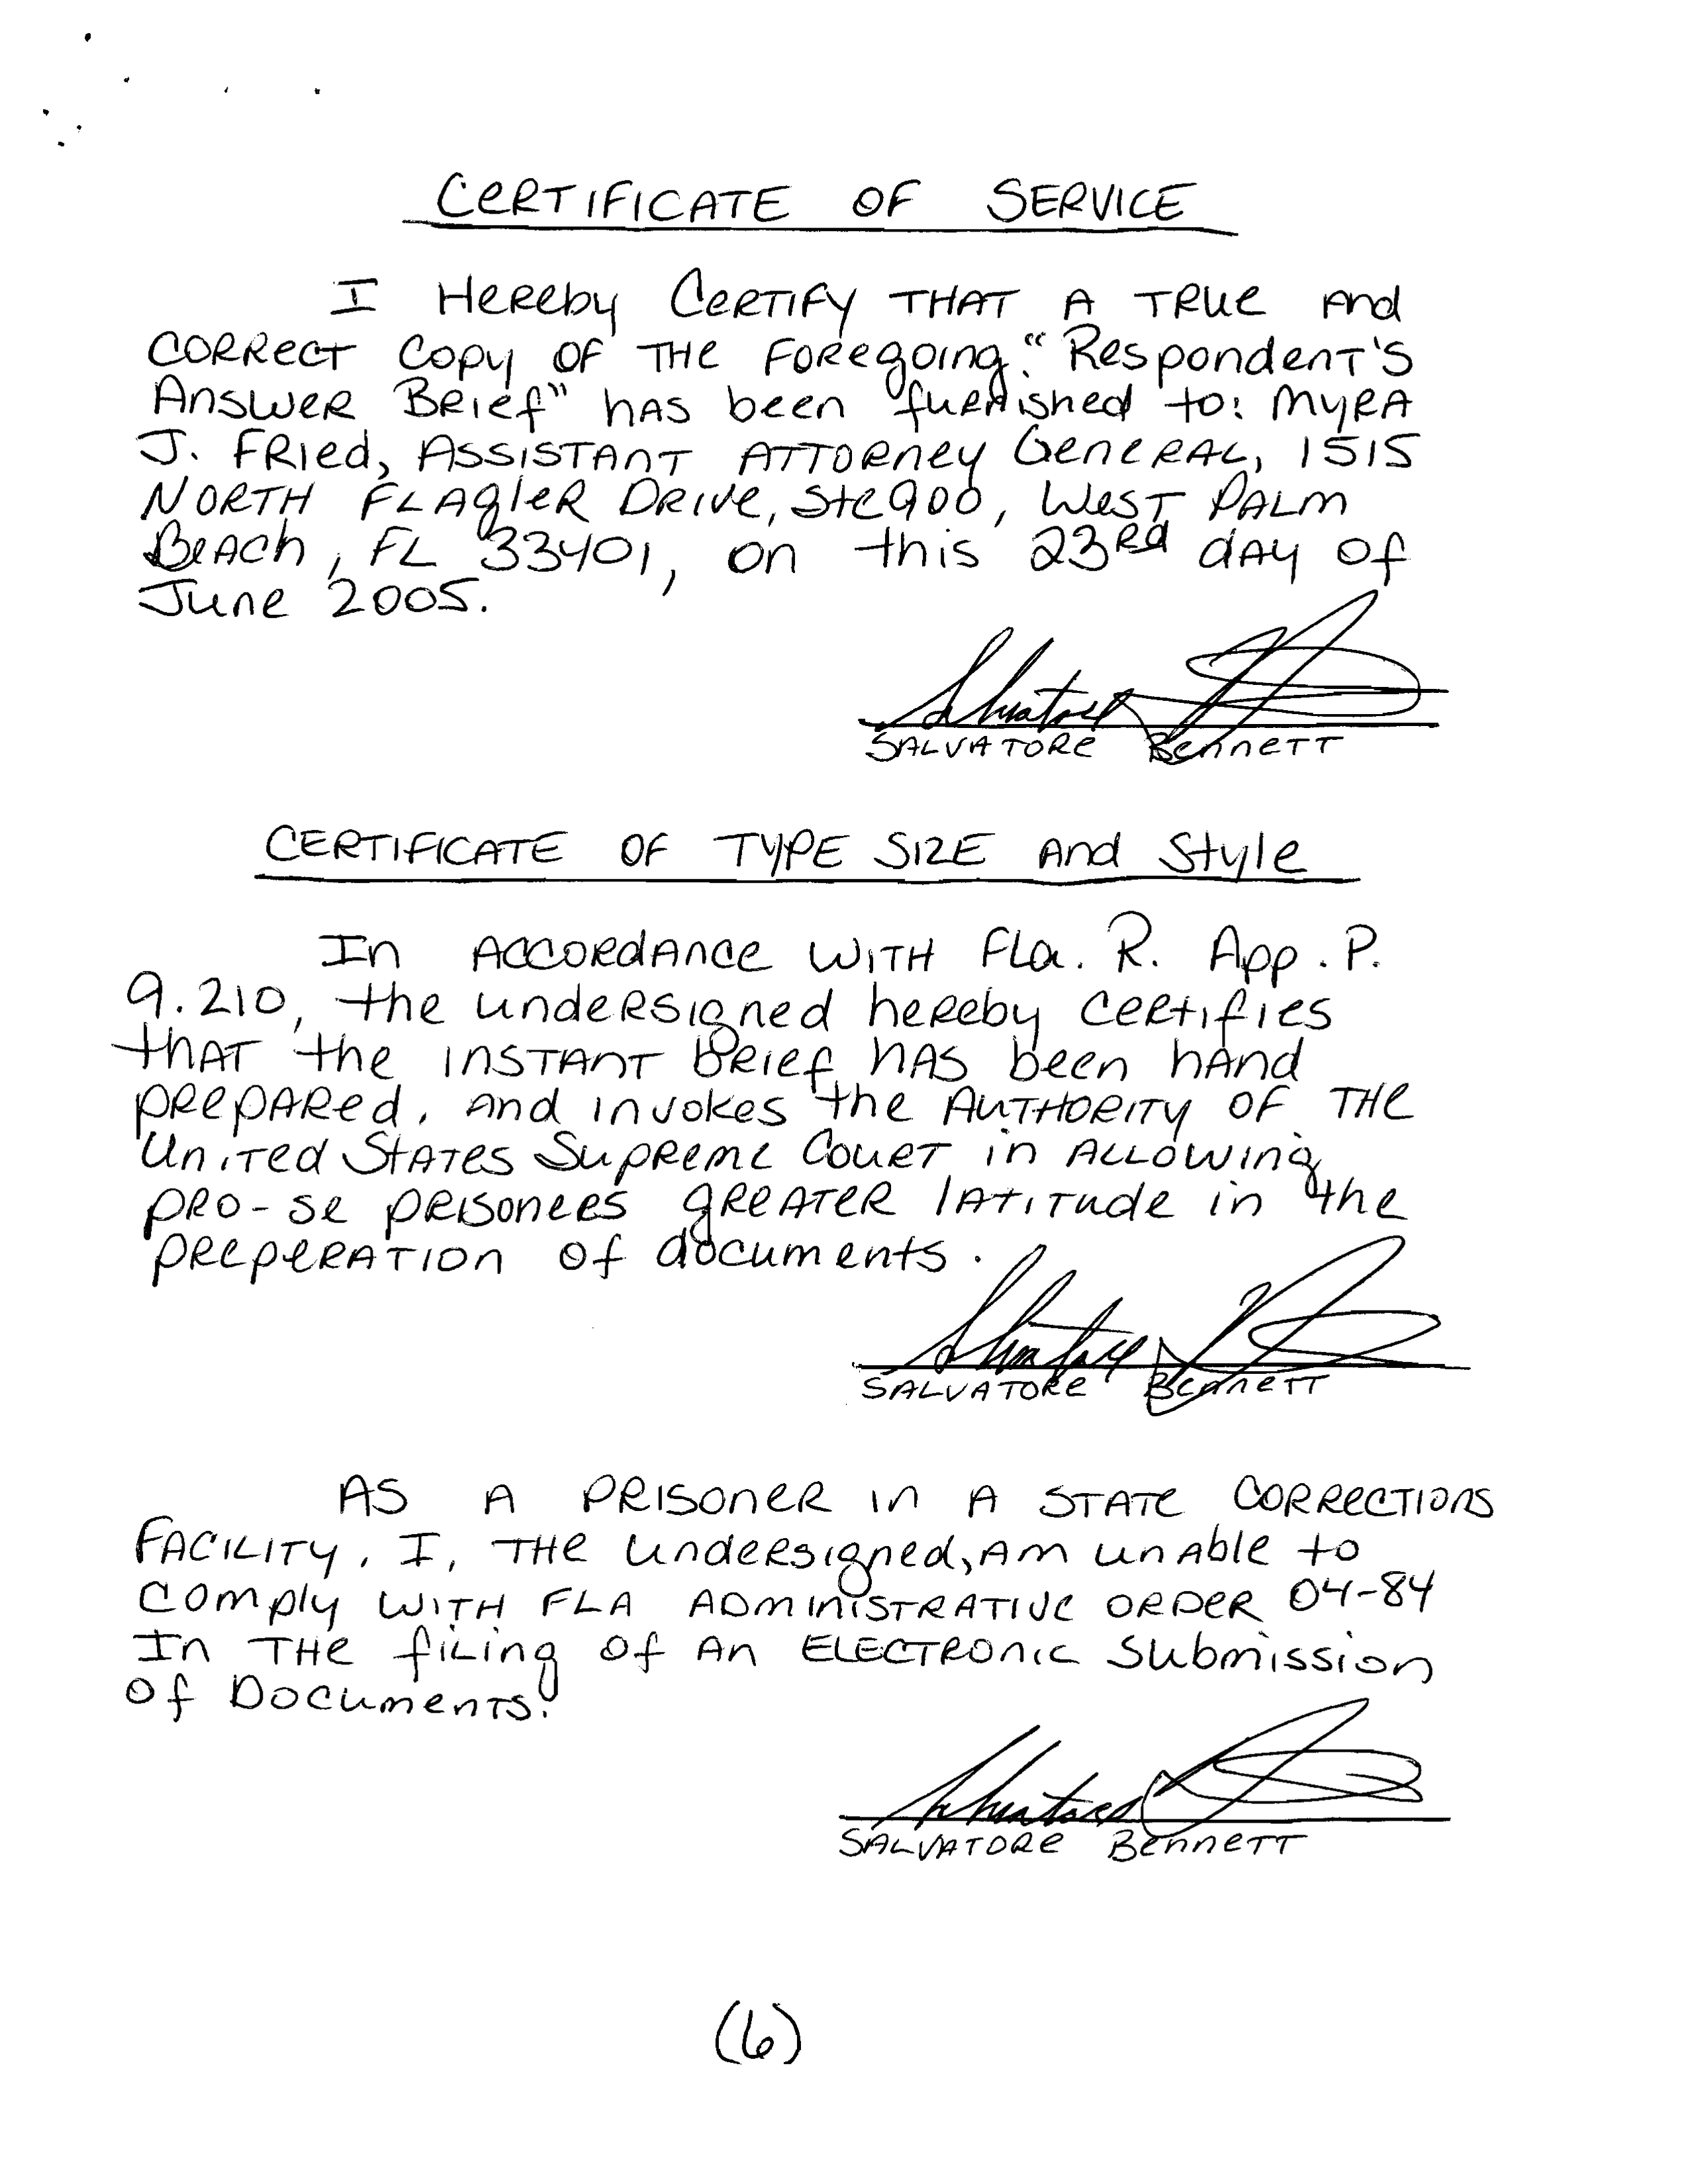 CERTIFICATE OF SERVICE
I Hereby CERTIFY THAT A TRUE And
CORRECT COPY OF THE FOREgoing "Respondent's
Answer Brief" has been furnished to: MYRA
J. FRied, ASSISTANT ATTORney General, 1515
NORTH FLAgleR DRIVE, Ste 900, WesT PALM
BeAch, FL 33401, on this 23Rd dAy of
June 2005.
SALVATORe BennETT
CERTIFICATE OF TYPE SIZE And Style
In ACCORdAnce WITH Fla. R. App. P.
9.210, the undersigned hereby certifies
thAT the INSTAnT brief hAS been hAnd
prepARed, And invokes the AUTHORITY OF THe
UniTed STATes SupReme Court in ALLOWing
pro-se prisoners greATeR lATiTude in the
prepeRATION of documents.
SALVATORe BennETT
AS A PRISoneR in A STATe CORReCTIONS
FACILITY, I, THe undeRsigned, Am unAble to
comply WITH FLA ADMINISTRATIVe ORDeR 04-84
In THe filing of An ELECTROnic Submission
of Documents.
SALVATORe BennETT
(6)